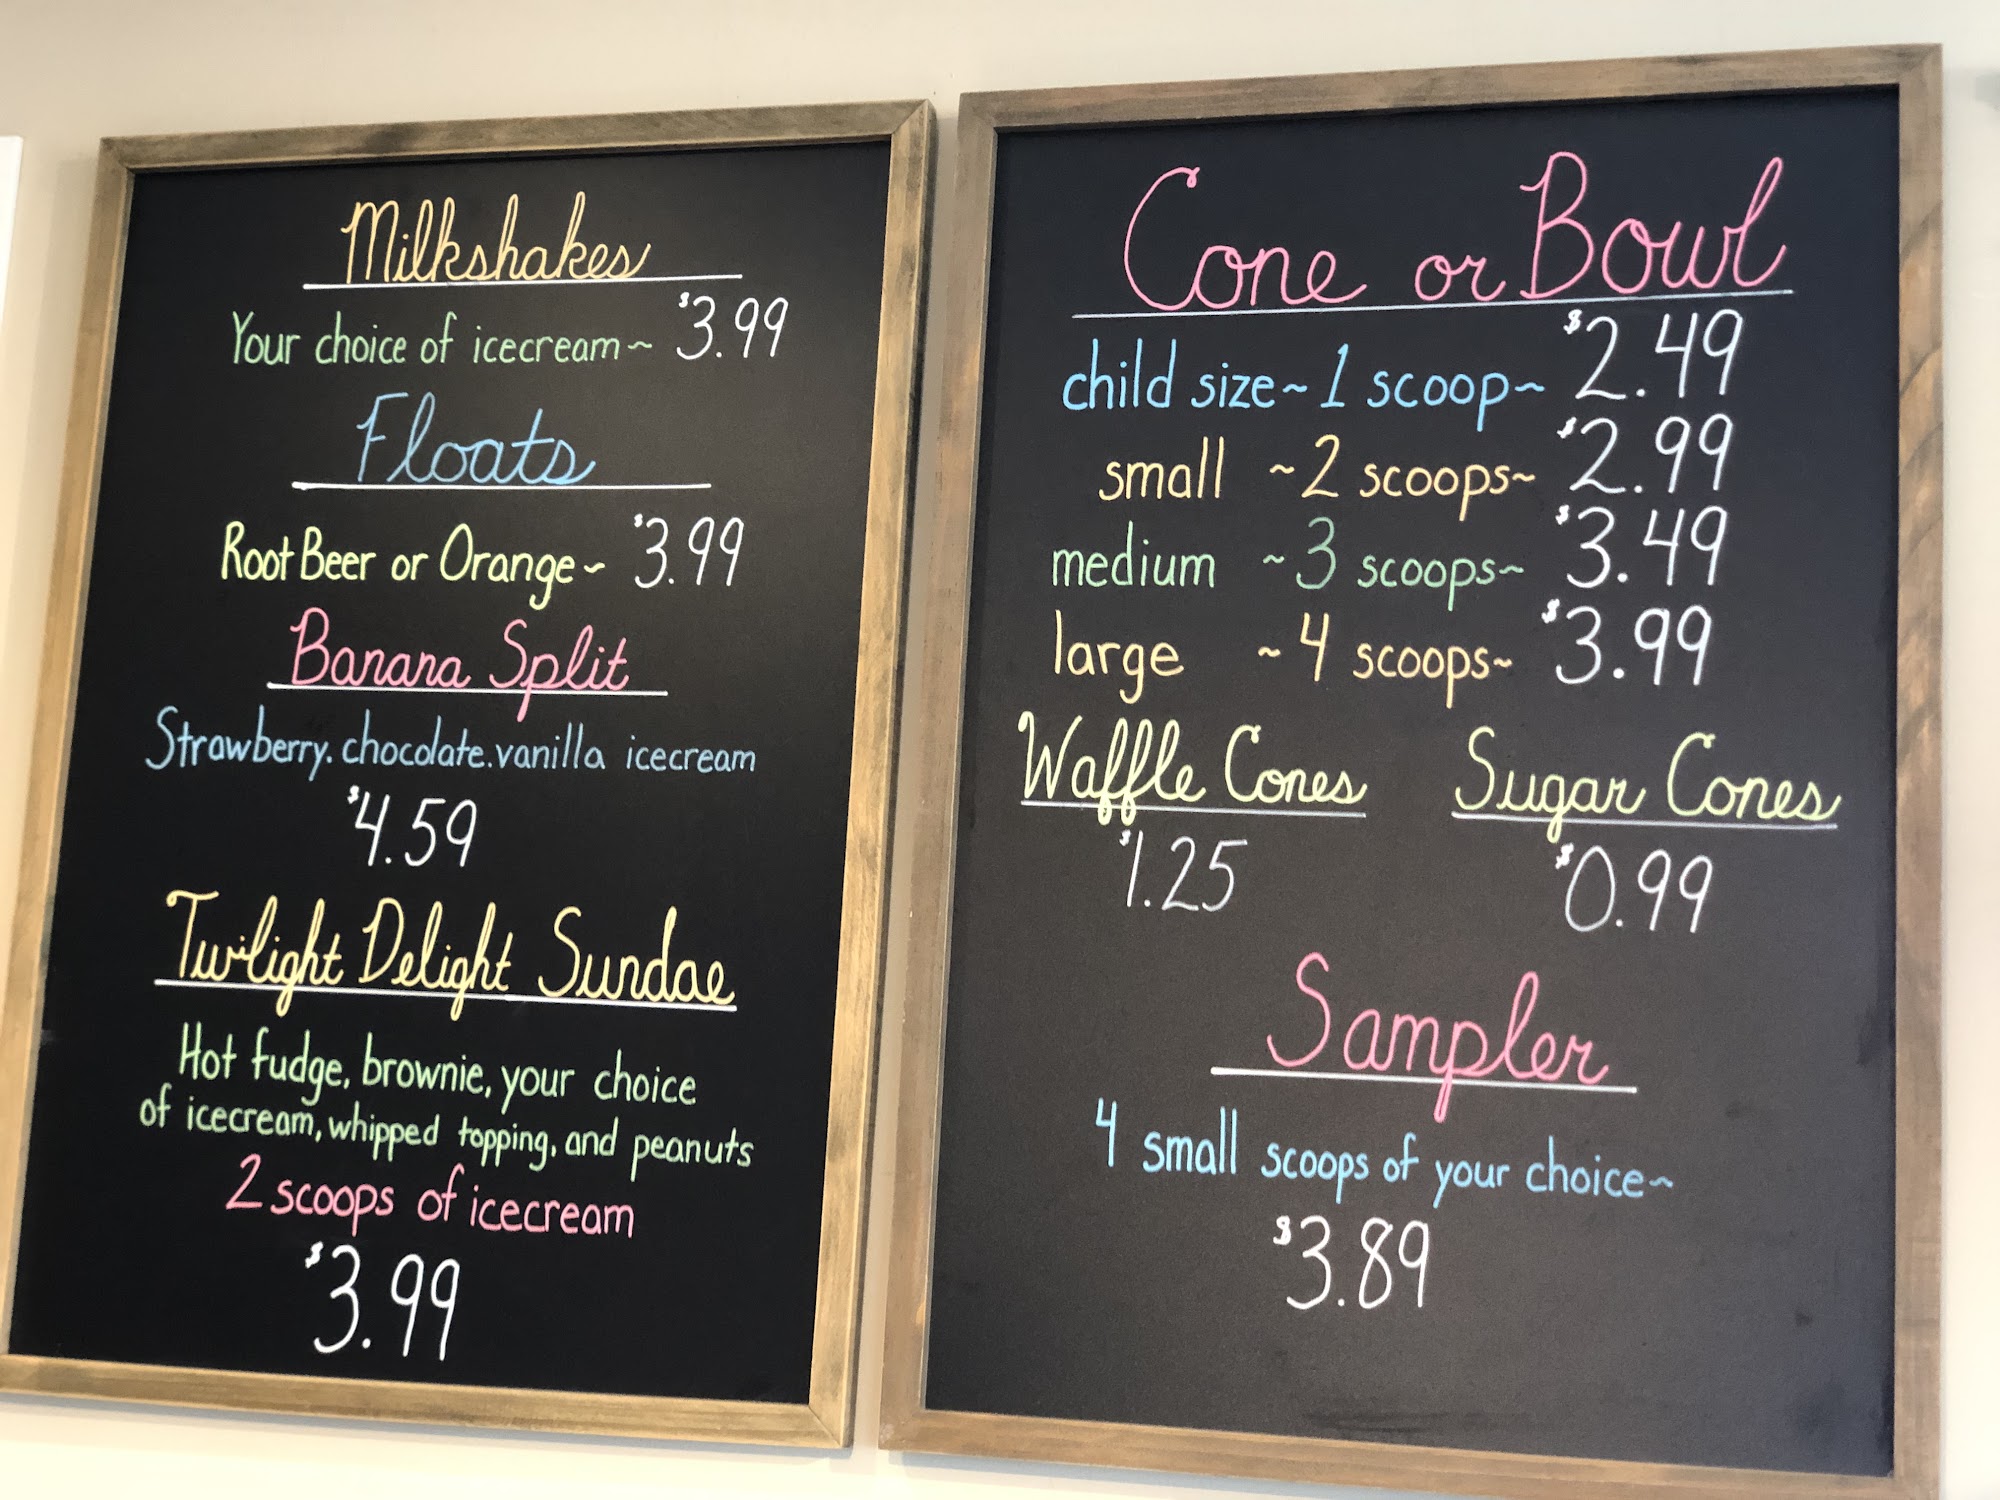 Milkshakes
Your choice of icecream~ $3.99
Floats
Root Beer or Orange~ $3.99
Banana Split
Strawberry. chocolate. vanilla icecream
$4.59
Twilight Delight Sundae
Hot fudge, brownie, your choice
of icecream, whipped topping, and peanuts
2 scoops of icecream
$3.99
Cone or Bowl
child size~ 1 scoop~ $2.49
small ~2 scoops~ $2.99
medium ~3 scoops~ $3.49
large ~4 scoops~ $3.99
Waffle Cones
$1.25
Sugar Cones
$0.99
Sampler
4 small scoops of your choice~
$3.89